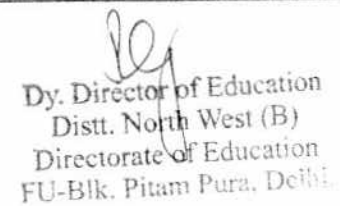 Dy. Director of Education
Distt. North West (B)
Directorate of Education
FU-Blk. Pitam Pura, Delhi.